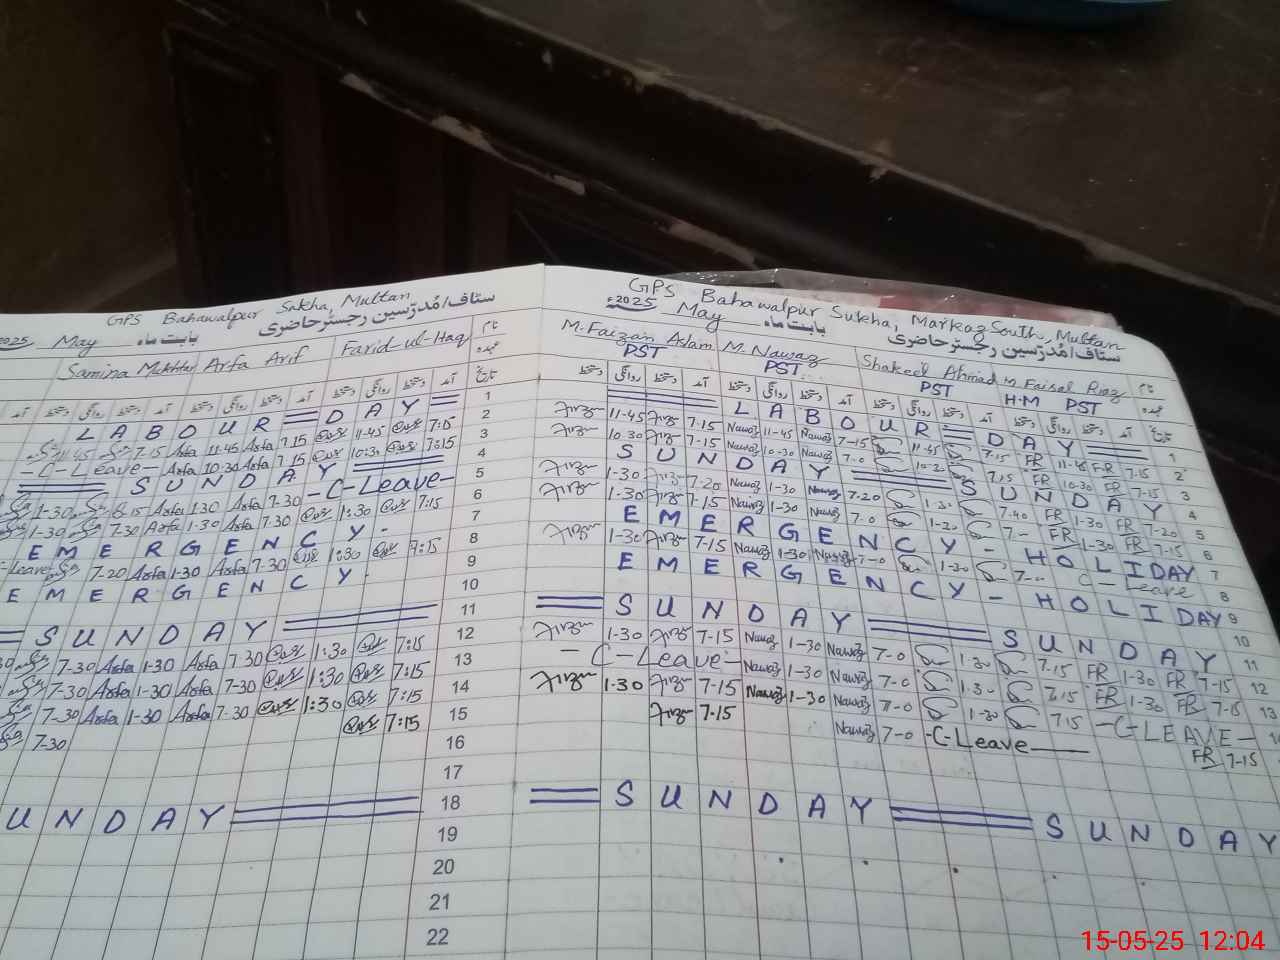 GPS Bahawalpur Sukha, Multan
سٹاف/مُدرّسین رجسٹر حاضری
2025 May بابت ماہ
Samina Mukhtar Arfa Arif Farid-ul-Haq نام
عہدہ
آمد دستخط روانگی دستخط آمد دستخط روانگی دستخط آمد تاریخ
LABOUR = DAY = 1
11-45 7-15 Arfa 11-45 Arfa 7.15 11-45 7:15 2
-C-Leave- Arfa 10.30 Arfa 7.15 10:30 7:15 3
SUNDAY 4
1-30 8.15 Arfa 1.30 Arfa 7.30 -C-Leave- 5
1-30 7-30 Arfa 1-30 Arfa 7.30 1:30 7:15 6
EMERGENCY - 7
-Leave 7-20 Arfa 1-30 Arfa 7-30 1:30 7:15 8
EMERGENCY. 9
10
SUNDAY 11
7-30 Arfa 1-30 Arfa 7.30 1:30 7:15 12
7-30 Arfa 1-30 Arfa 7-30 1:30 7:15 13
7-30 Arfa 1-30 Arfa 7-30 1:30 7:15 14
7-30 7:15 15
16
17
UNDAY 18
19
20
21
22
GPS Bahawalpur Sukha, Markaz South, Multan
سٹاف/مُدرّسین رجسٹر حاضری
2025ء May بابت ماہ
M. Faizan Aslam M. Nawaz Shakeel Ahmad M Faisal Riaz نام
PST PST PST H.M PST عہدہ
دستخط روانگی دستخط آمد دستخط روانگی دستخط آمد دستخط روانگی دستخط آمد دستخط روانگی دستخط آمد تاریخ
LABOUR = DAY = 1
11-45 7-15 Nawaz 11-45 Nawaz 7-15 11-45 7-15 FR 11-45 FR 7-15 2
10.30 7-15 Nawaz 10-30 Nawaz 7-0 7.15 FR 10-30 FR 7-15 3
SUNDAY SUNDAY 4
1-30 7-20 Nawaz 1-30 Nawaz 7.20 1.30 7.40 FR 1-30 FR 7-20 5
1-30 7-15 Nawaz 1-30 Nawaz 7-0 FR 1-30 FR 7-15 6
EMERGENCY - HOLIDAY 7
1-30 7-15 Nawaz 1-30 Nawaz 7-0 1-30 C-Leave 8
EMERGENCY - HOLIDAY 9
10
SUNDAY SUNDAY 11
1-30 7-15 Nawaz 1-30 Nawaz 7-0 1.30 7.15 FR 1-30 FR 7-15 12
-C-Leave- Nawaz 1-30 Nawaz 7-0 1.30 7.15 FR 1-30 FR 7-15 13
1-30 7-15 Nawaz 1-30 Nawaz 7-0 1-30 7.15 -C-LEAVE-
7-15 Nawaz 7-0 -C-Leave- FR 7-15
SUNDAY SUNDAY
15-05-25 12:04